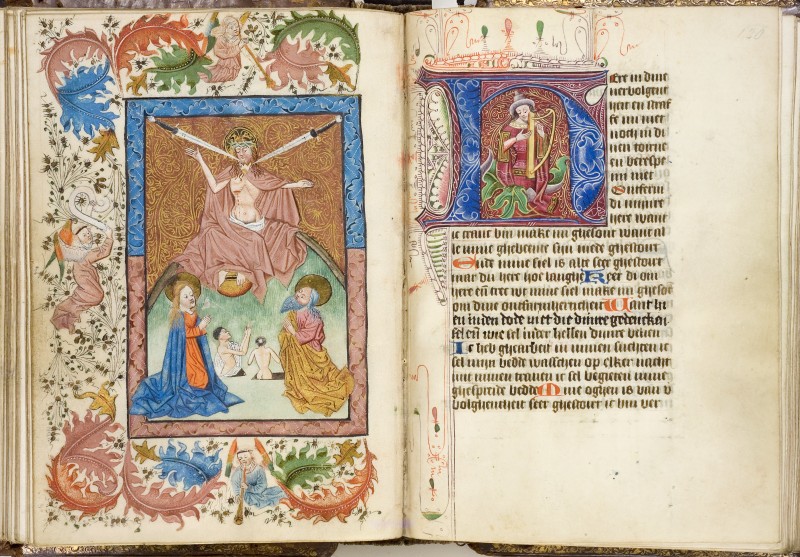 126
HEre in dinre
verbolgent
heit en straf
fe mi niet
noch in di
nen torne
en berespe
mi niet
Ontferm
di mijnre
here want
ic cranc bin make mi ghesont want al
le mine ghebeente sijn mede ghestoort
Ende mine siel is alte seer ghestoort
mar du here hoe langhe Keer di om
here en wt mine siel make mi ghesont
om dine ontfarmherticheit Want hi
en in den dode niet die dinre gedencken
sel en wie sel inder hellen dijnre
Ic heb ghearbeit in minen suchten ic
sel mijn bedde wasschen op elker nacht
mit minen tranen ic sel begieten mine
ghespreide bedde Mine oghen is van v
bolghentheit seer ghestoort ic bin ver